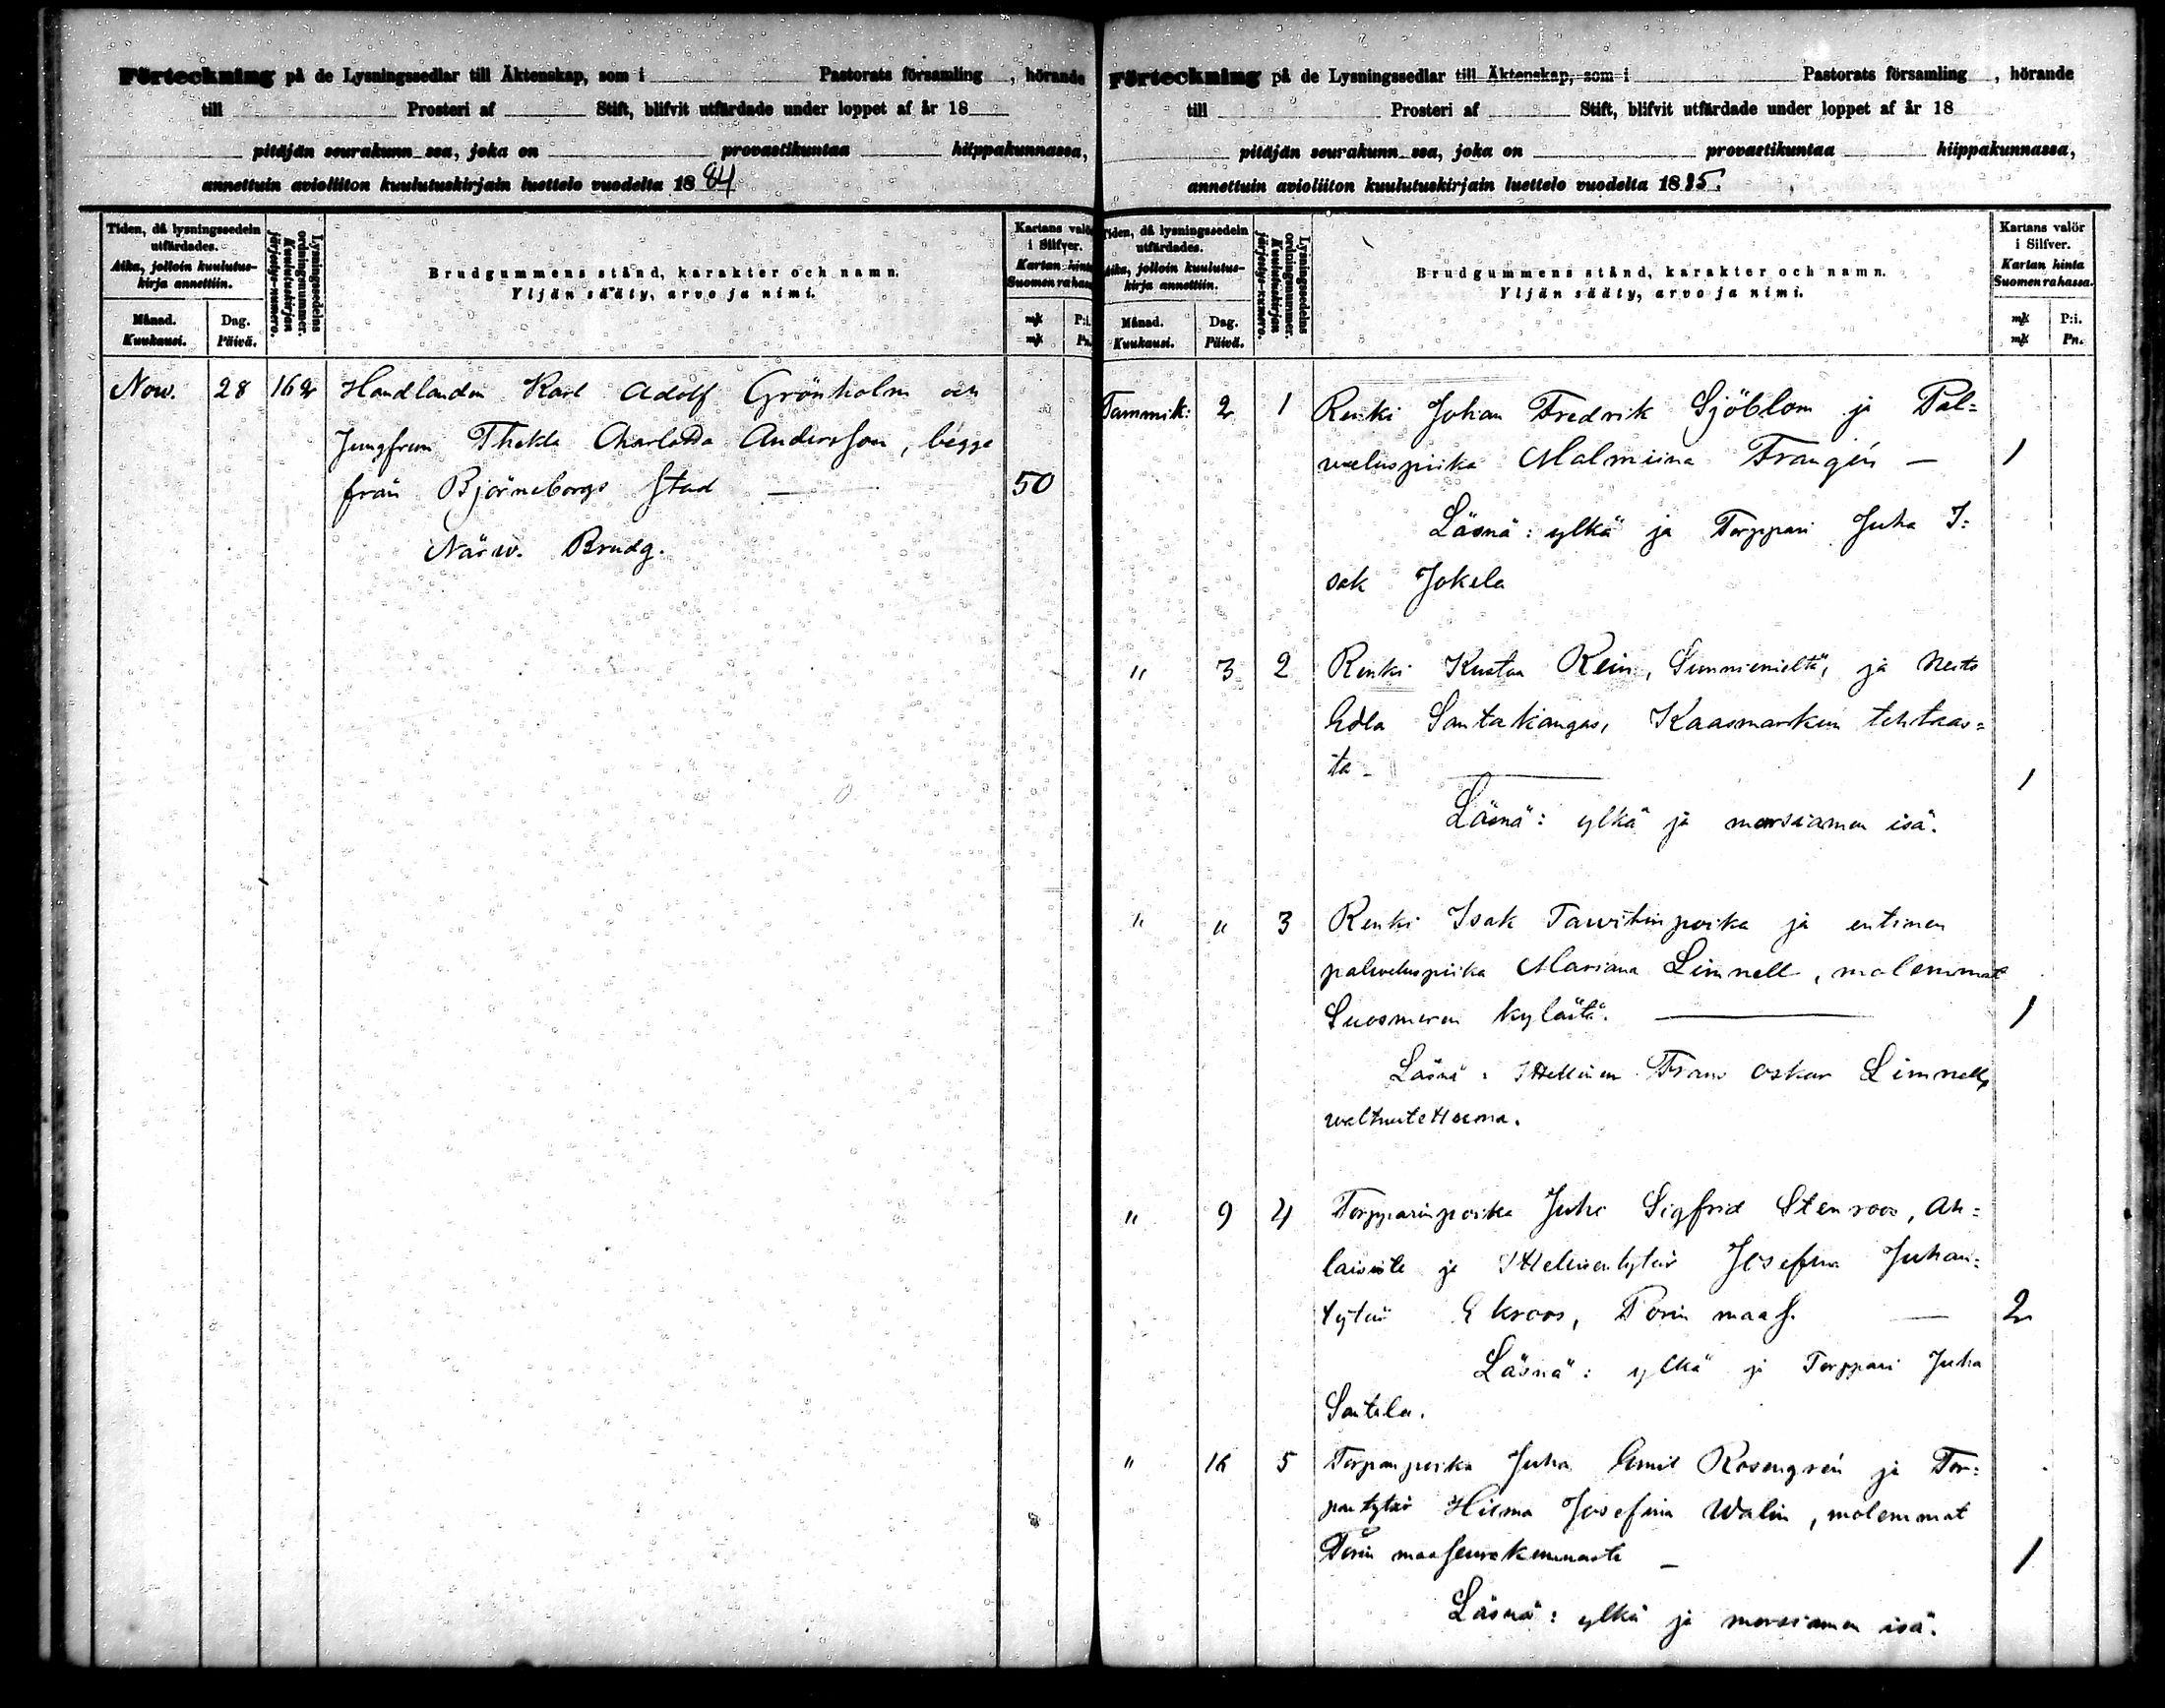 Förteckning på de Lysningssedlar till Äktenskap, som i Pastorats församling , hörande
till Prosteri af Stift, blifvit utfärdade under loppet af år 18
pitäjän seurakunn ssa, joka on provastikuntaa hiippakunnassa,
annettuin avioliiton kuulutuskirjain luettelo vuodelta 1884
Tiden, då lysningssedeln
utfärdades.
Aika, jolloin kuulutus-
kirja annettiin.
Månad.
Kuukausi.
Dag.
Päivä.
Lysningssedelns
ordningsnummer.
Kuulutuskirjan
järjestys-numero.
Brudgummens stånd, karakter och namn.
Yljän sääty, arvo ja nimi.
Kartans valör
i Silfver.
Kartan hinta
Suomen rahassa
mk P:i.
mk Pn.
Now. 28 162 Handlanden Karl Adolf Grönholm och
Jungfrun Thekla Charlotta Andersson, begge
från Björneborgs stad — 50
Närw. Brudg.
Förteckning på de Lysningssedlar till Äktenskap, som i Pastorats församling , hörande
till Prosteri af Stift, blifvit utfärdade under loppet af år 18
pitäjän seurakunn ssa, joka on provastikuntaa hiippakunnassa,
annettuin avioliiton kuulutuskirjain luettelo vuodelta 1885.
Tiden, då lysningssedeln
utfärdades.
Aika, jolloin kuulutus-
kirja annettiin.
Månad.
Kuukausi.
Dag.
Päivä.
Lysningssedelns
ordningsnummer.
Kuulutuskirjan
järjestys-numero.
Brudgummens stånd, karakter och namn.
Yljän sääty, arvo ja nimi.
Kartans valör
i Silfver.
Kartan hinta
Suomen rahassa.
mk P:i.
mk Pn.
Tammik: 2 1 Renki Johan Fredrik Sjöblom ja Pal=
weluspiika Malmiina Frangén — 1
Läsnä: ylkä ja Torppari Juha I=
sak Jokela
" 3 2 Renki Kustaa Rein, Sunniemeltä, ja Neito
Edla Santakangas, Kaasmarkun tehtaas=
ta — 1
Läsnä: ylkä ja morsiamen isä.
" " 3 Renki Isak Tawitinpoika ja entinen
palweluspiika Mariana Limnell, molemmat
Suosmeren kylästä. — 1
Läsnä: Itsellinen Frans Oskar Limnell,
waltuutettuna.
" 9 4 Torpparinpoika Juha Sigfrid Stenroos, Ah=
laisista ja Itsellisentytär Josefina Juhan=
tytär Ekroos, Porin maas. — 2
Läsnä: ylkä ja Torppari Juha
Santala.
" 16 5 Torpanpoika Juha Emil Rosengrén ja Tor=
pantytär Hilma Josefina Walin, molemmat
Porin maaseurakunnasta — 1
Läsnä: ylkä ja morsiamen isä.